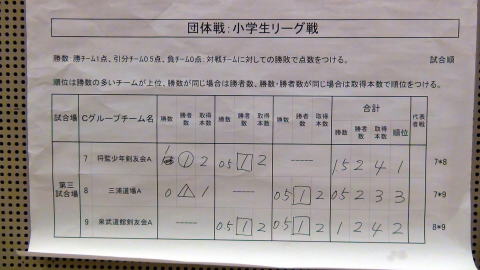 団体戦：小学生リーグ戦
勝数：勝チーム1点、引分チーム0.5点、負チーム0点：対戦チームに対しての勝敗で点数をつける。 試合順
順位は勝数の多いチームが上位、勝数が同じ場合は勝者数、勝数・勝者数が同じ場合は取得本数で順位をつける。
試合場 Cグループチーム名 勝数 勝者数 取得本数 勝数 勝者数 取得本数 勝数 勝者数 取得本数 合計 代表者戦
勝数 勝者数 取得本数 順位
第三試合場
7 将監少年剣友会A 1 1 2 0.5 1 2 ----- 1.5 2 4 1 7*8
8 三浦道場A 0 1 ----- 0.5 1 2 0.5 2 3 3 7*9
9 東武道館剣友会A ----- 0.5 1 2 0.5 1 2 1 2 4 2 8*9